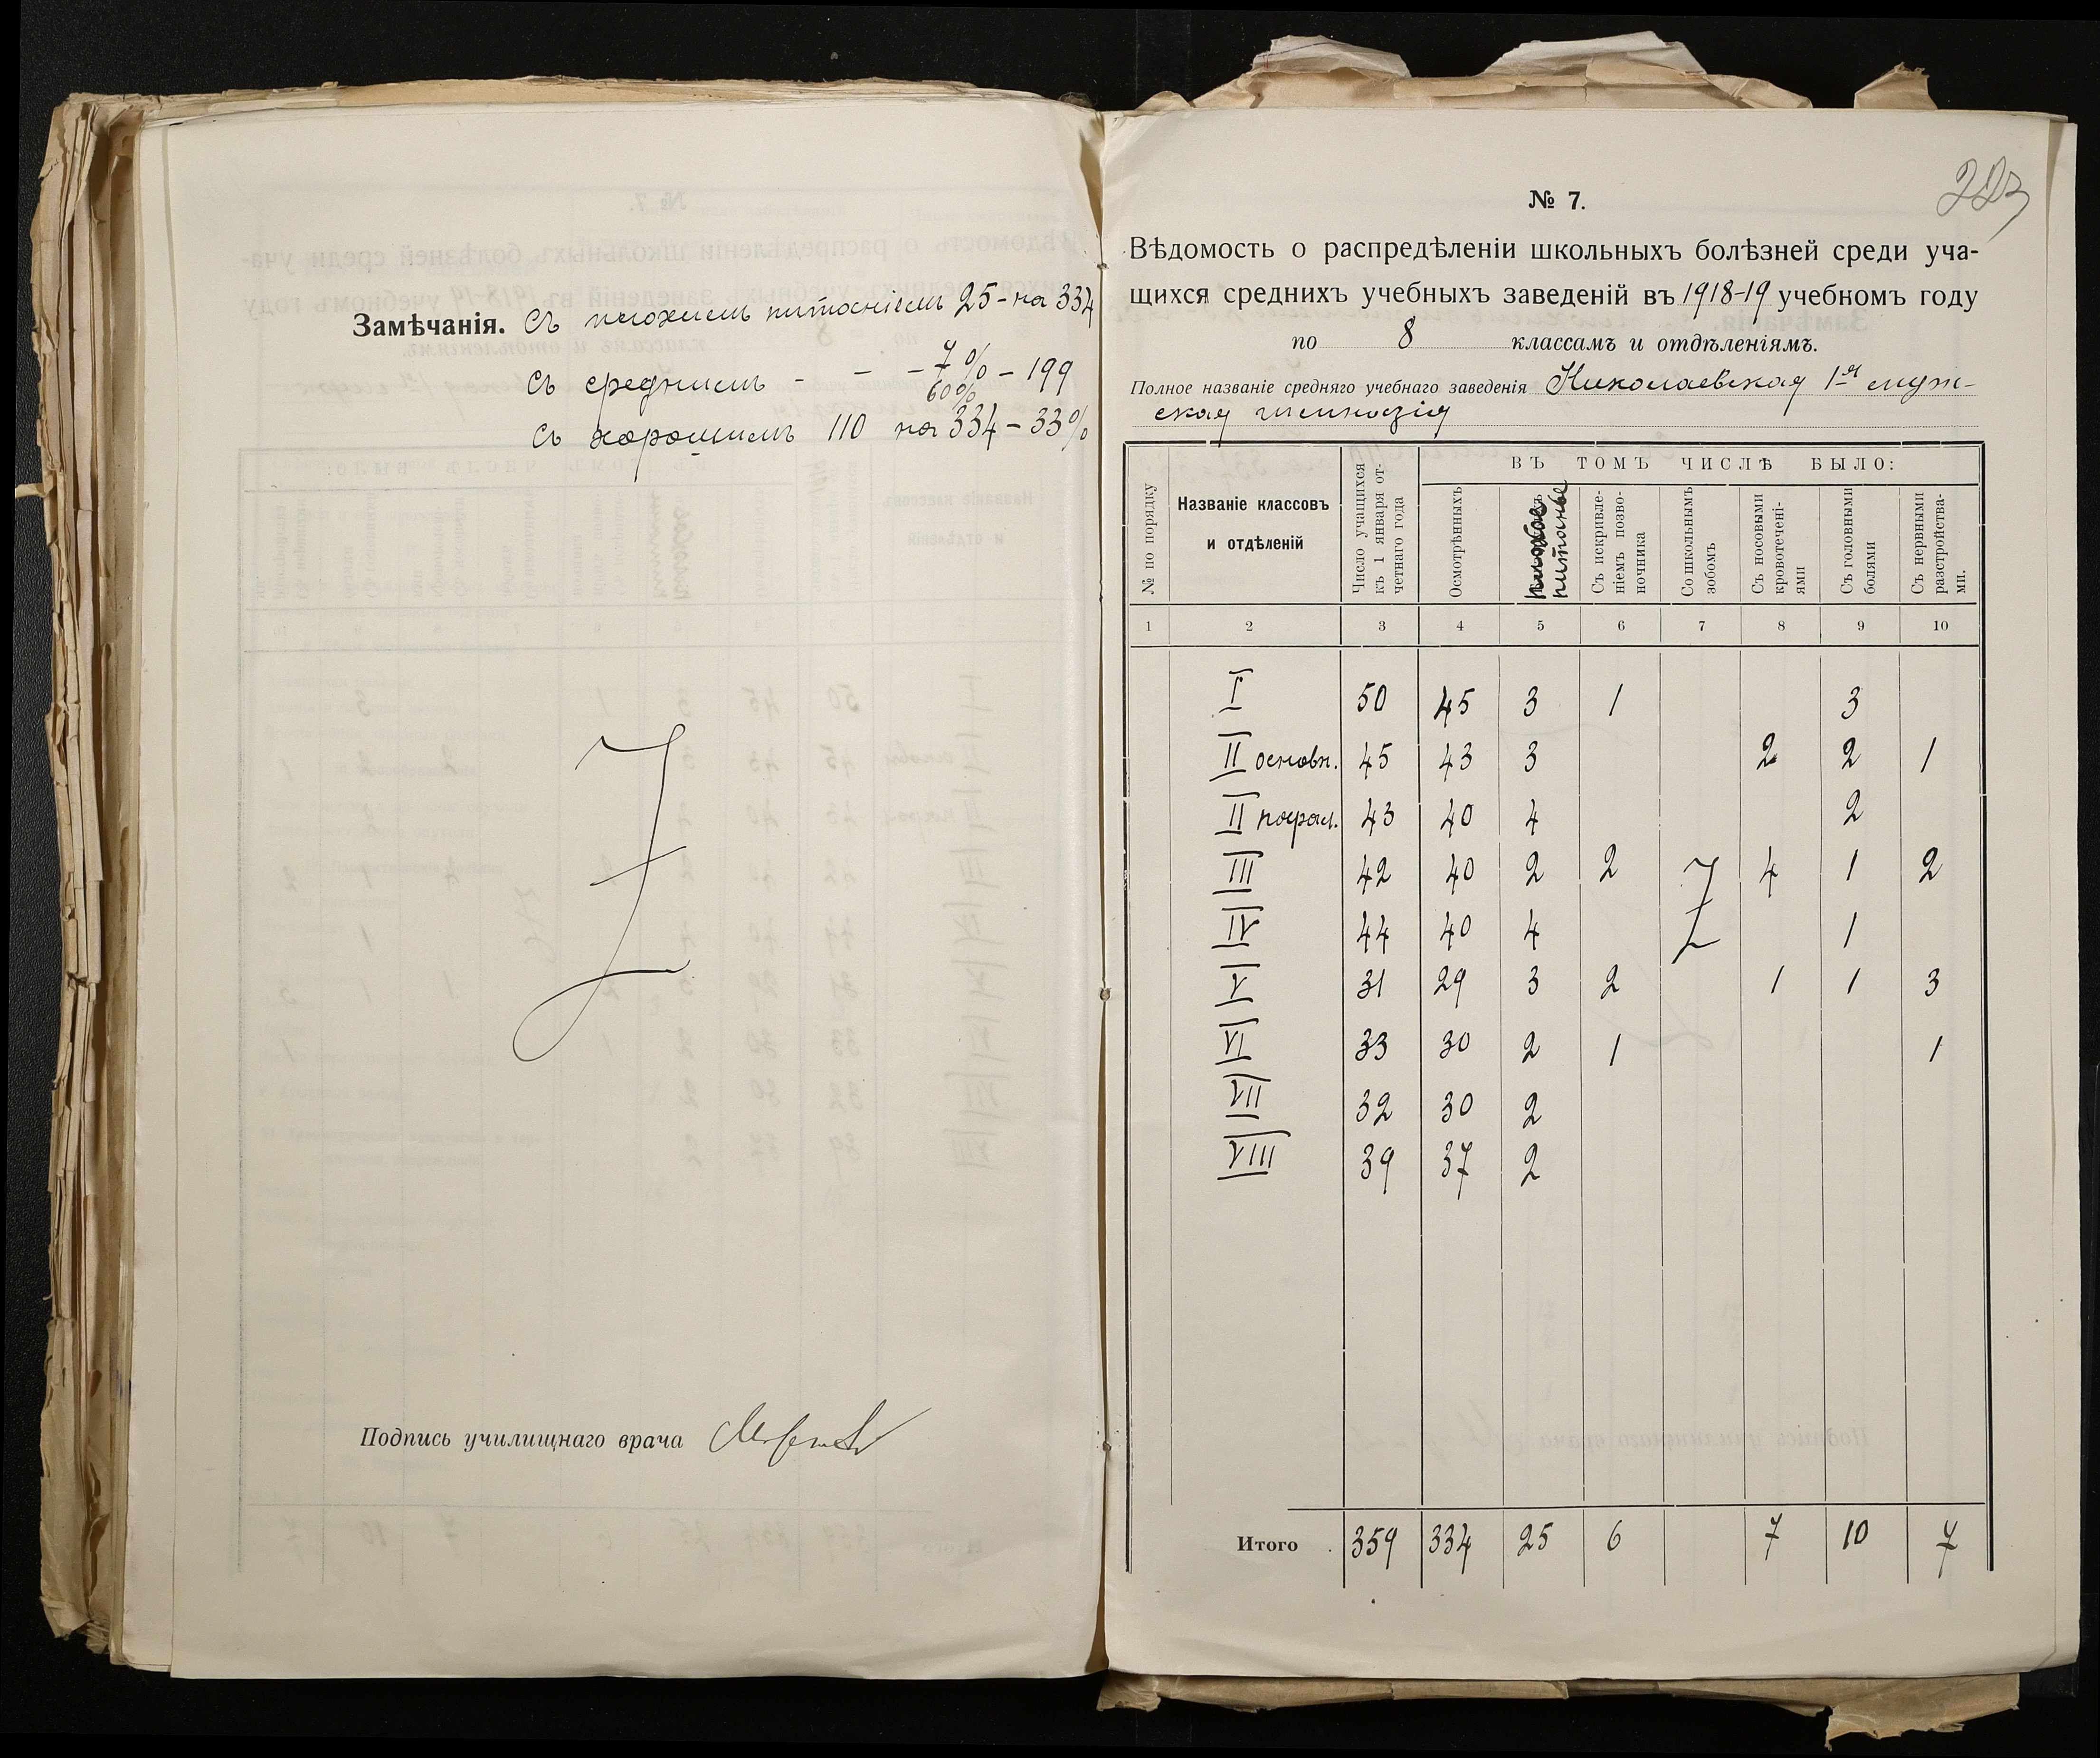 Замѣчанія. Съ плохимъ питаніемъ 25 - на 334
7%
Съ среднимъ - - - 199
60%
Съ хорошимъ 110 на 334 - 33%
Подпись училищнаго врача
223
№ 7.
Вѣдомость о распредѣленіи школьныхъ болѣзней среди уча-
щихся среднихъ учебныхъ заведеній въ 1918-19 учебномъ году
по 8 классамъ и отдѣленіямъ.
Полное названіе средняго учебнаго заведенія Николаевская 1-я муж-
ская гимназія
№ по порядку
Названіе классовъ
и отдѣленій
Число учащихся
къ 1 января от-
четнаго года
ВЪ ТОМЪ ЧИСЛѢ БЫЛО:
Осмотрѣнныхъ
плохое
питанье
Съ искривле-
ніемъ позво-
ночника
Со школьнымъ
зобомъ
Съ носовыми
кровотечені-
ями
Съ головными
болями
Съ нервными
разстройства-
ми.
1 2 3 4 5 6 7 8 9 10
I 50 45 3 1 3
II основн. 45 43 3 2 2 1
II парал. 43 40 4 2
III 42 40 2 2 4 1 2
IV 44 40 4 1
V 31 29 3 2 1 1 3
VI 33 30 2 1 1
VII 32 30 2
VIII 39 37 2
Итого 359 334 25 6 7 10 7